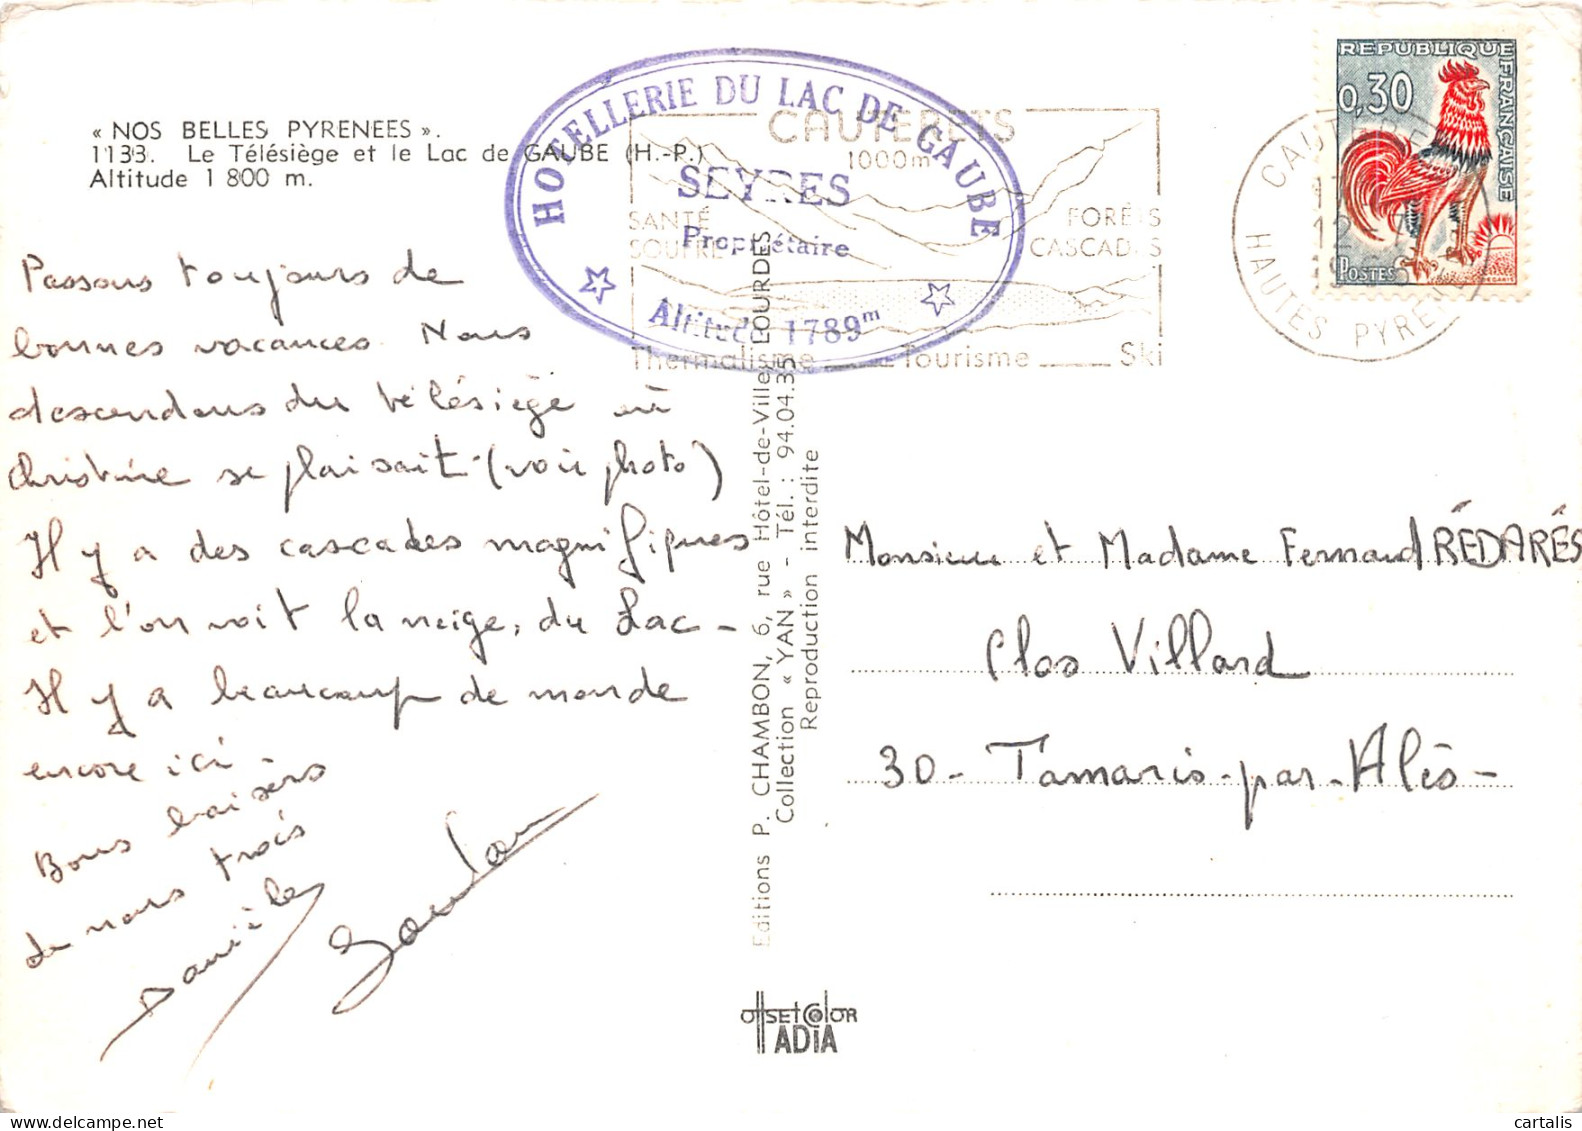 « NOS BELLES PYRENEES ».
1133. Le Télésiège et le Lac de GAUBE (H.-P.)
Altitude 1 800 m.
HOTELLERIE DU LAC DE GAUBE
SEYRES
Propriétaire
Altitude 1789m
CAUTERETS
1000m
SANTÉ
SOUFRE
FORÊTS
CASCADES
Thermalisme Tourisme Ski
REPUBLIQUE FRANÇAISE
0,30
POSTES
CAUTERETS
HAUTES PYRENEES
Passons toujours de
bonnes vacances. Nous
descendons du télésiège où
Christine se plaisait (voir photo)
Il y a des cascades magnifiques
et l'on voit la neige, du Lac -
Il y a beaucoup de monde
encore ici
Bons baisers
de nous trois
Danièle
Editions P. CHAMBON, 6, rue Hôtel-de-Ville, LOURDES
Collection « YAN » - Tél. : 94.04.35
Reproduction interdite
Monsieur et Madame Fernand RÉDARÉS
Clos Villard
30 - Tamaris-par-Alès -
OFFSET COLOR
IADIA
cartalis
www.delcampe.net